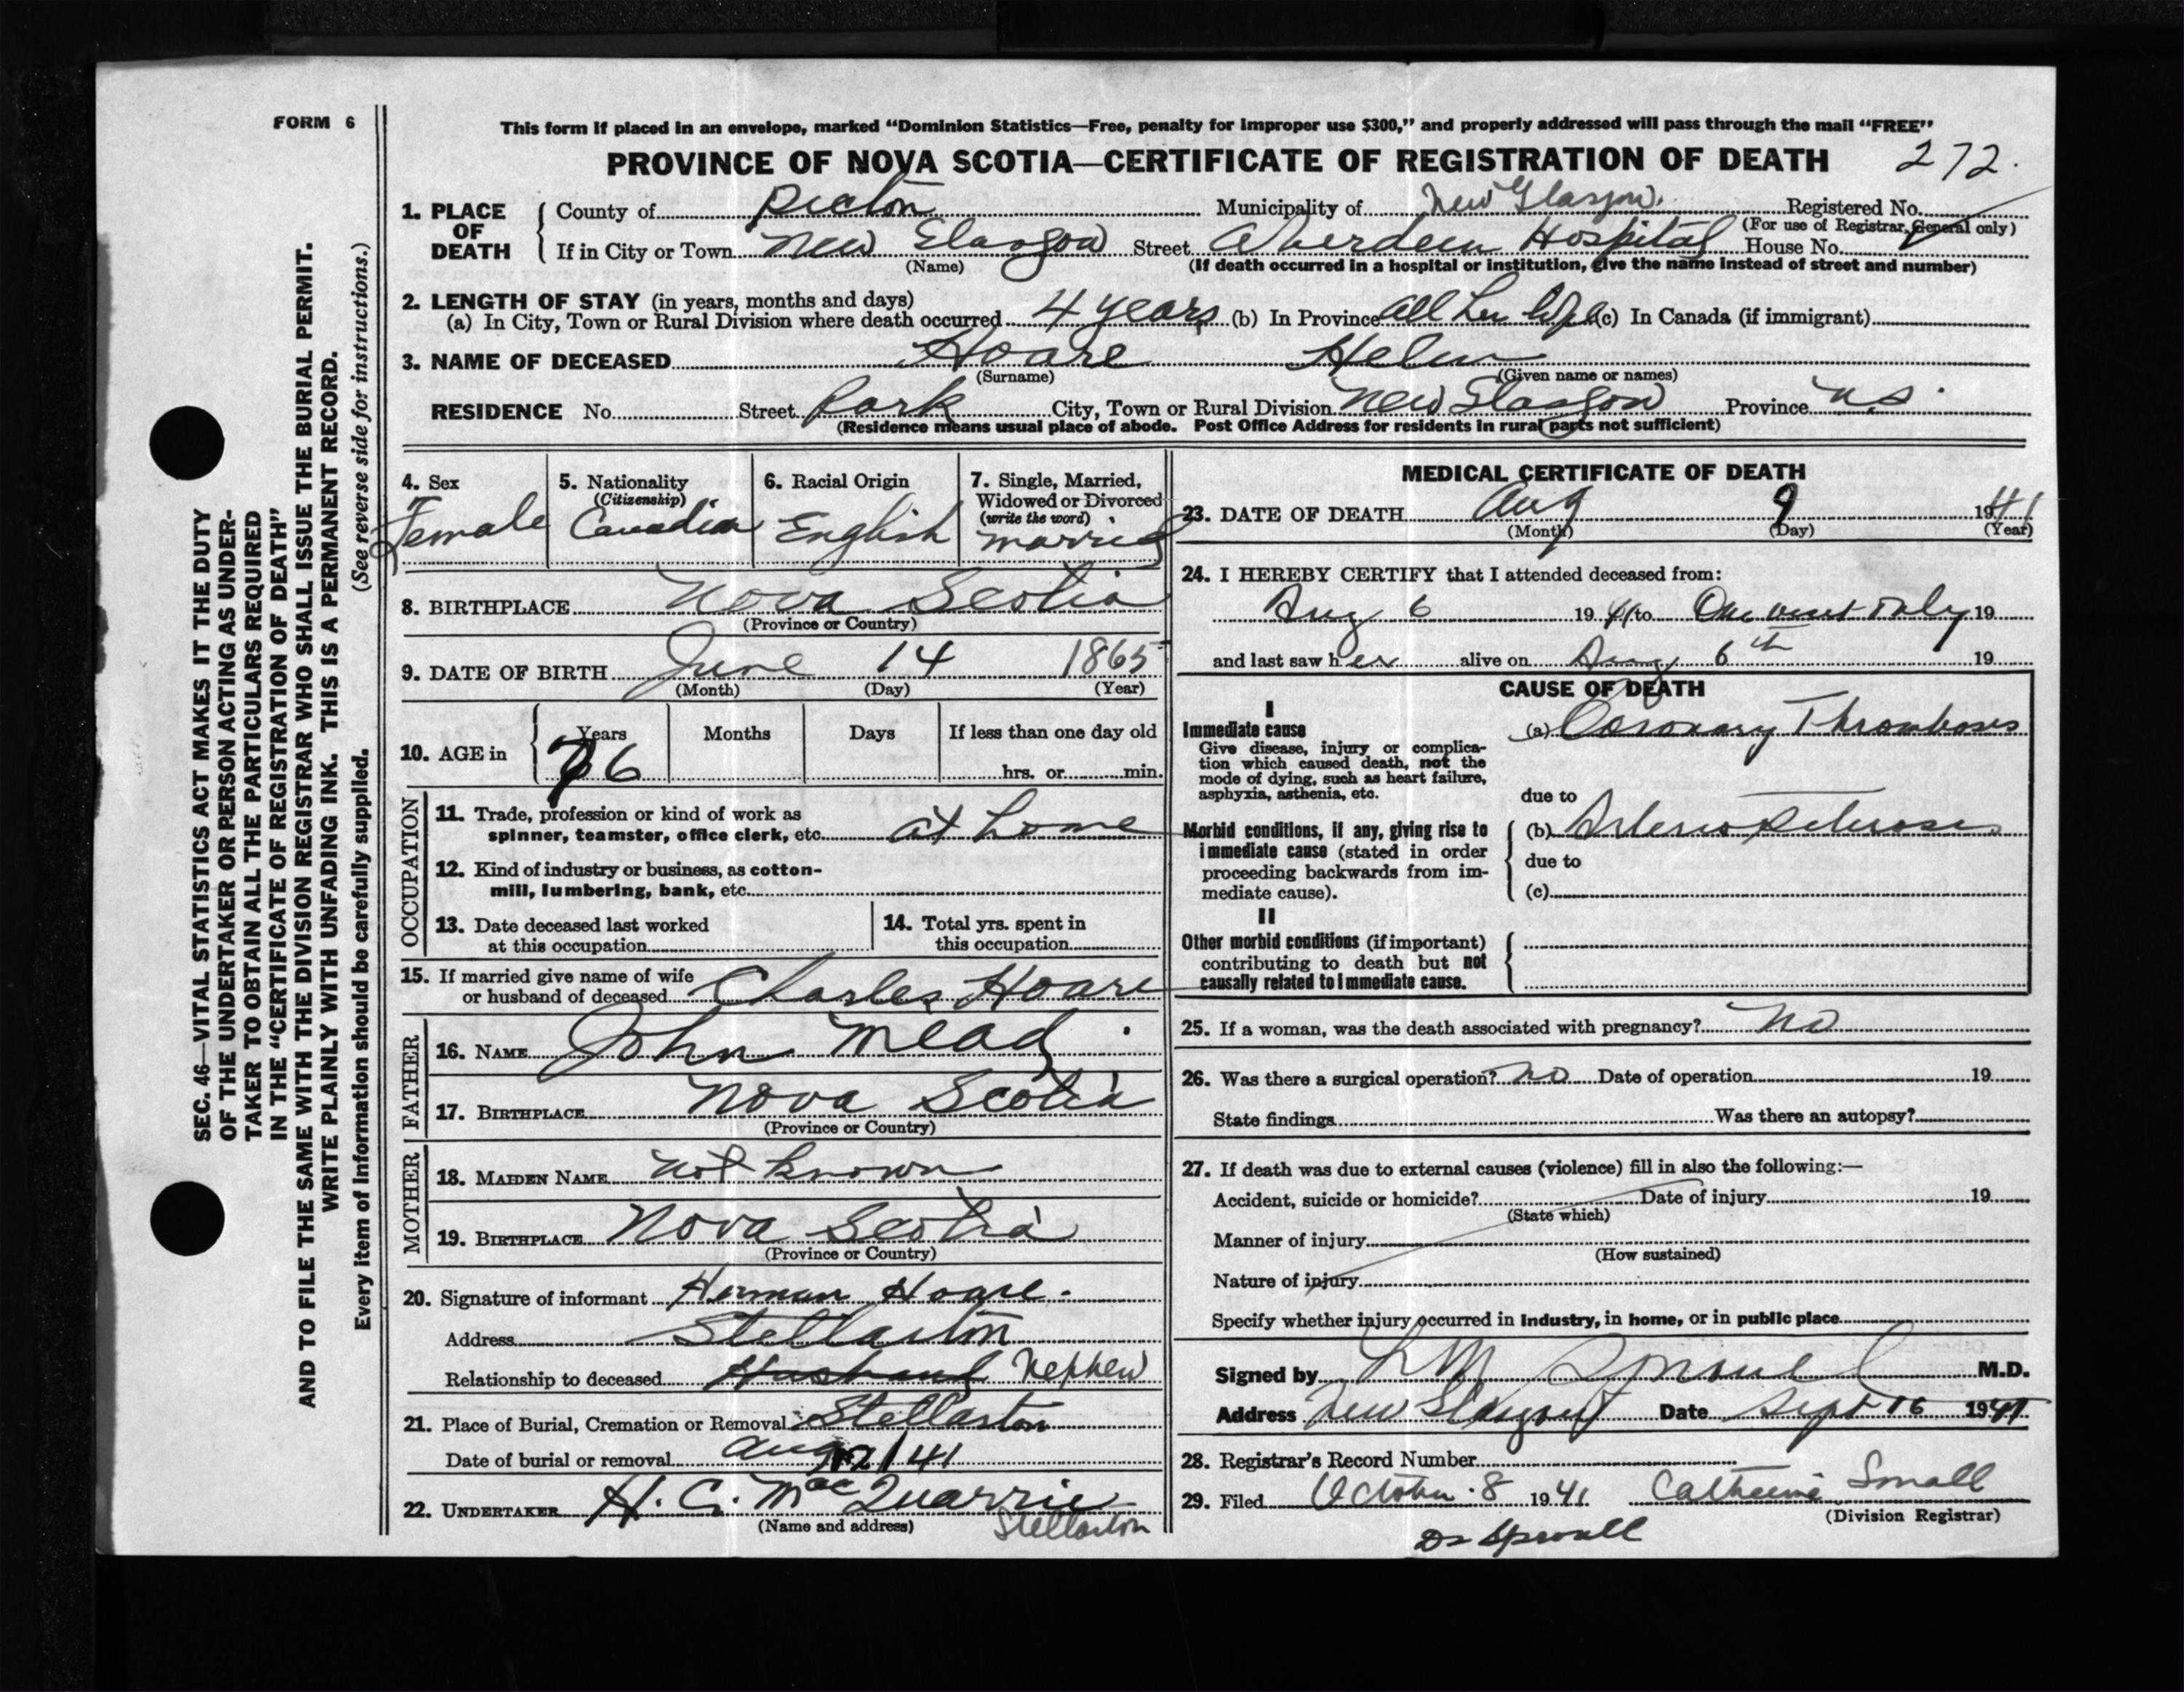 FORM 6
SEC. 46—VITAL STATISTICS ACT MAKES IT THE DUTY
OF THE UNDERTAKER OR PERSON ACTING AS UNDER-
TAKER TO OBTAIN ALL THE PARTICULARS REQUIRED
IN THE "CERTIFICATE OF REGISTRATION OF DEATH"
AND TO FILE THE SAME WITH THE DIVISION REGISTRAR WHO SHALL ISSUE THE BURIAL PERMIT.
WRITE PLAINLY WITH UNFADING INK. THIS IS A PERMANENT RECORD.
Every item of information should be carefully supplied. (See reverse side for instructions.)
This form if placed in an envelope, marked "Dominion Statistics—Free, penalty for improper use $300," and properly addressed will pass through the mail "FREE"
PROVINCE OF NOVA SCOTIA—CERTIFICATE OF REGISTRATION OF DEATH 272.
1. PLACE OF DEATH County of Pictou Municipality of New Glasgow. Registered No.
(For use of Registrar General only)
If in City or Town New Glasgow Street Aberdeen Hospital House No.
(Name) (If death occurred in a hospital or institution, give the name instead of street and number)
2. LENGTH OF STAY (in years, months and days)
(a) In City, Town or Rural Division where death occurred 4 years (b) In Province all her life (c) In Canada (if immigrant)
3. NAME OF DECEASED Hoare Helen
(Surname) (Given name or names)
RESIDENCE No. Street Park City, Town or Rural Division New Glasgow Province N.S.
(Residence means usual place of abode. Post Office Address for residents in rural parts not sufficient)
4. Sex
Female
5. Nationality
(Citizenship)
Canadian
6. Racial Origin
English
7. Single, Married,
Widowed or Divorced
(write the word)
married
8. BIRTHPLACE Nova Scotia
(Province or Country)
9. DATE OF BIRTH June 14 1865
(Month) (Day) (Year)
10. AGE in Years Months Days If less than one day old
76 hrs. or min.
OCCUPATION
11. Trade, profession or kind of work as
spinner, teamster, office clerk, etc. at home
12. Kind of industry or business, as cotton-
mill, lumbering, bank, etc.
13. Date deceased last worked
at this occupation
14. Total yrs. spent in
this occupation
15. If married give name of wife
or husband of deceased Charles Hoare
FATHER
16. NAME John Mead
17. BIRTHPLACE Nova Scotia
(Province or Country)
MOTHER
18. MAIDEN NAME not known
19. BIRTHPLACE Nova Scotia
(Province or Country)
20. Signature of informant Herman Hoare.
Address Stellarton
Relationship to deceased Husband Nephew
21. Place of Burial, Cremation or Removal Stellarton
Date of burial or removal Aug 12/41
22. UNDERTAKER H. G. MacQuarrie
(Name and address) Stellarton
MEDICAL CERTIFICATE OF DEATH
23. DATE OF DEATH Aug 9 1941
(Month) (Day) (Year)
24. I HEREBY CERTIFY that I attended deceased from:
Aug 6 1941 to One visit only 19
and last saw her alive on Aug 6th 19
CAUSE OF DEATH
I
Immediate cause
Give disease, injury or complica-
tion which caused death, not the
mode of dying, such as heart failure,
asphyxia, asthenia, etc.
(a) Coronary Thrombosis
due to
Morbid conditions, if any, giving rise to
immediate cause (stated in order
proceeding backwards from im-
mediate cause).
(b) Arteriosclerosis
due to
(c)
II
Other morbid conditions (if important)
contributing to death but not
causally related to immediate cause.
25. If a woman, was the death associated with pregnancy? No
26. Was there a surgical operation? no Date of operation 19
State findings Was there an autopsy?
27. If death was due to external causes (violence) fill in also the following:—
Accident, suicide or homicide? Date of injury 19
(State which)
Manner of injury
(How sustained)
Nature of injury
Specify whether injury occurred in industry, in home, or in public place
Signed by M.D.
Address New Glasgow Date Sept 16 1941
28. Registrar's Record Number
29. Filed October 8 1941 Catherine Small
(Division Registrar)
Dr Sproull